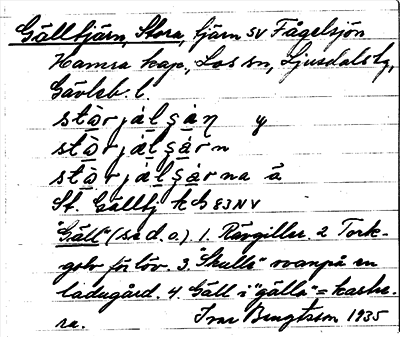 Gälltjärn, Stora, tjärn SV Fågelsjön
Hamra kap., Los sn, Ljusdals tg,
Gävleb. l.
stọ̀r jálʂàɳ y
stọ̀r jálʂàrn
stọ̀r jálʂàrna å
St. Gälltj tb 83NV
"Gäll" (så d. o.) 1. Rävgiller. 2 Tork-
golv för löv. 3. "Skulle" ovanpå en
ladugård. 4. Gäll i "gälla" = kastre-
ra. Ivar Bengtsson 1935